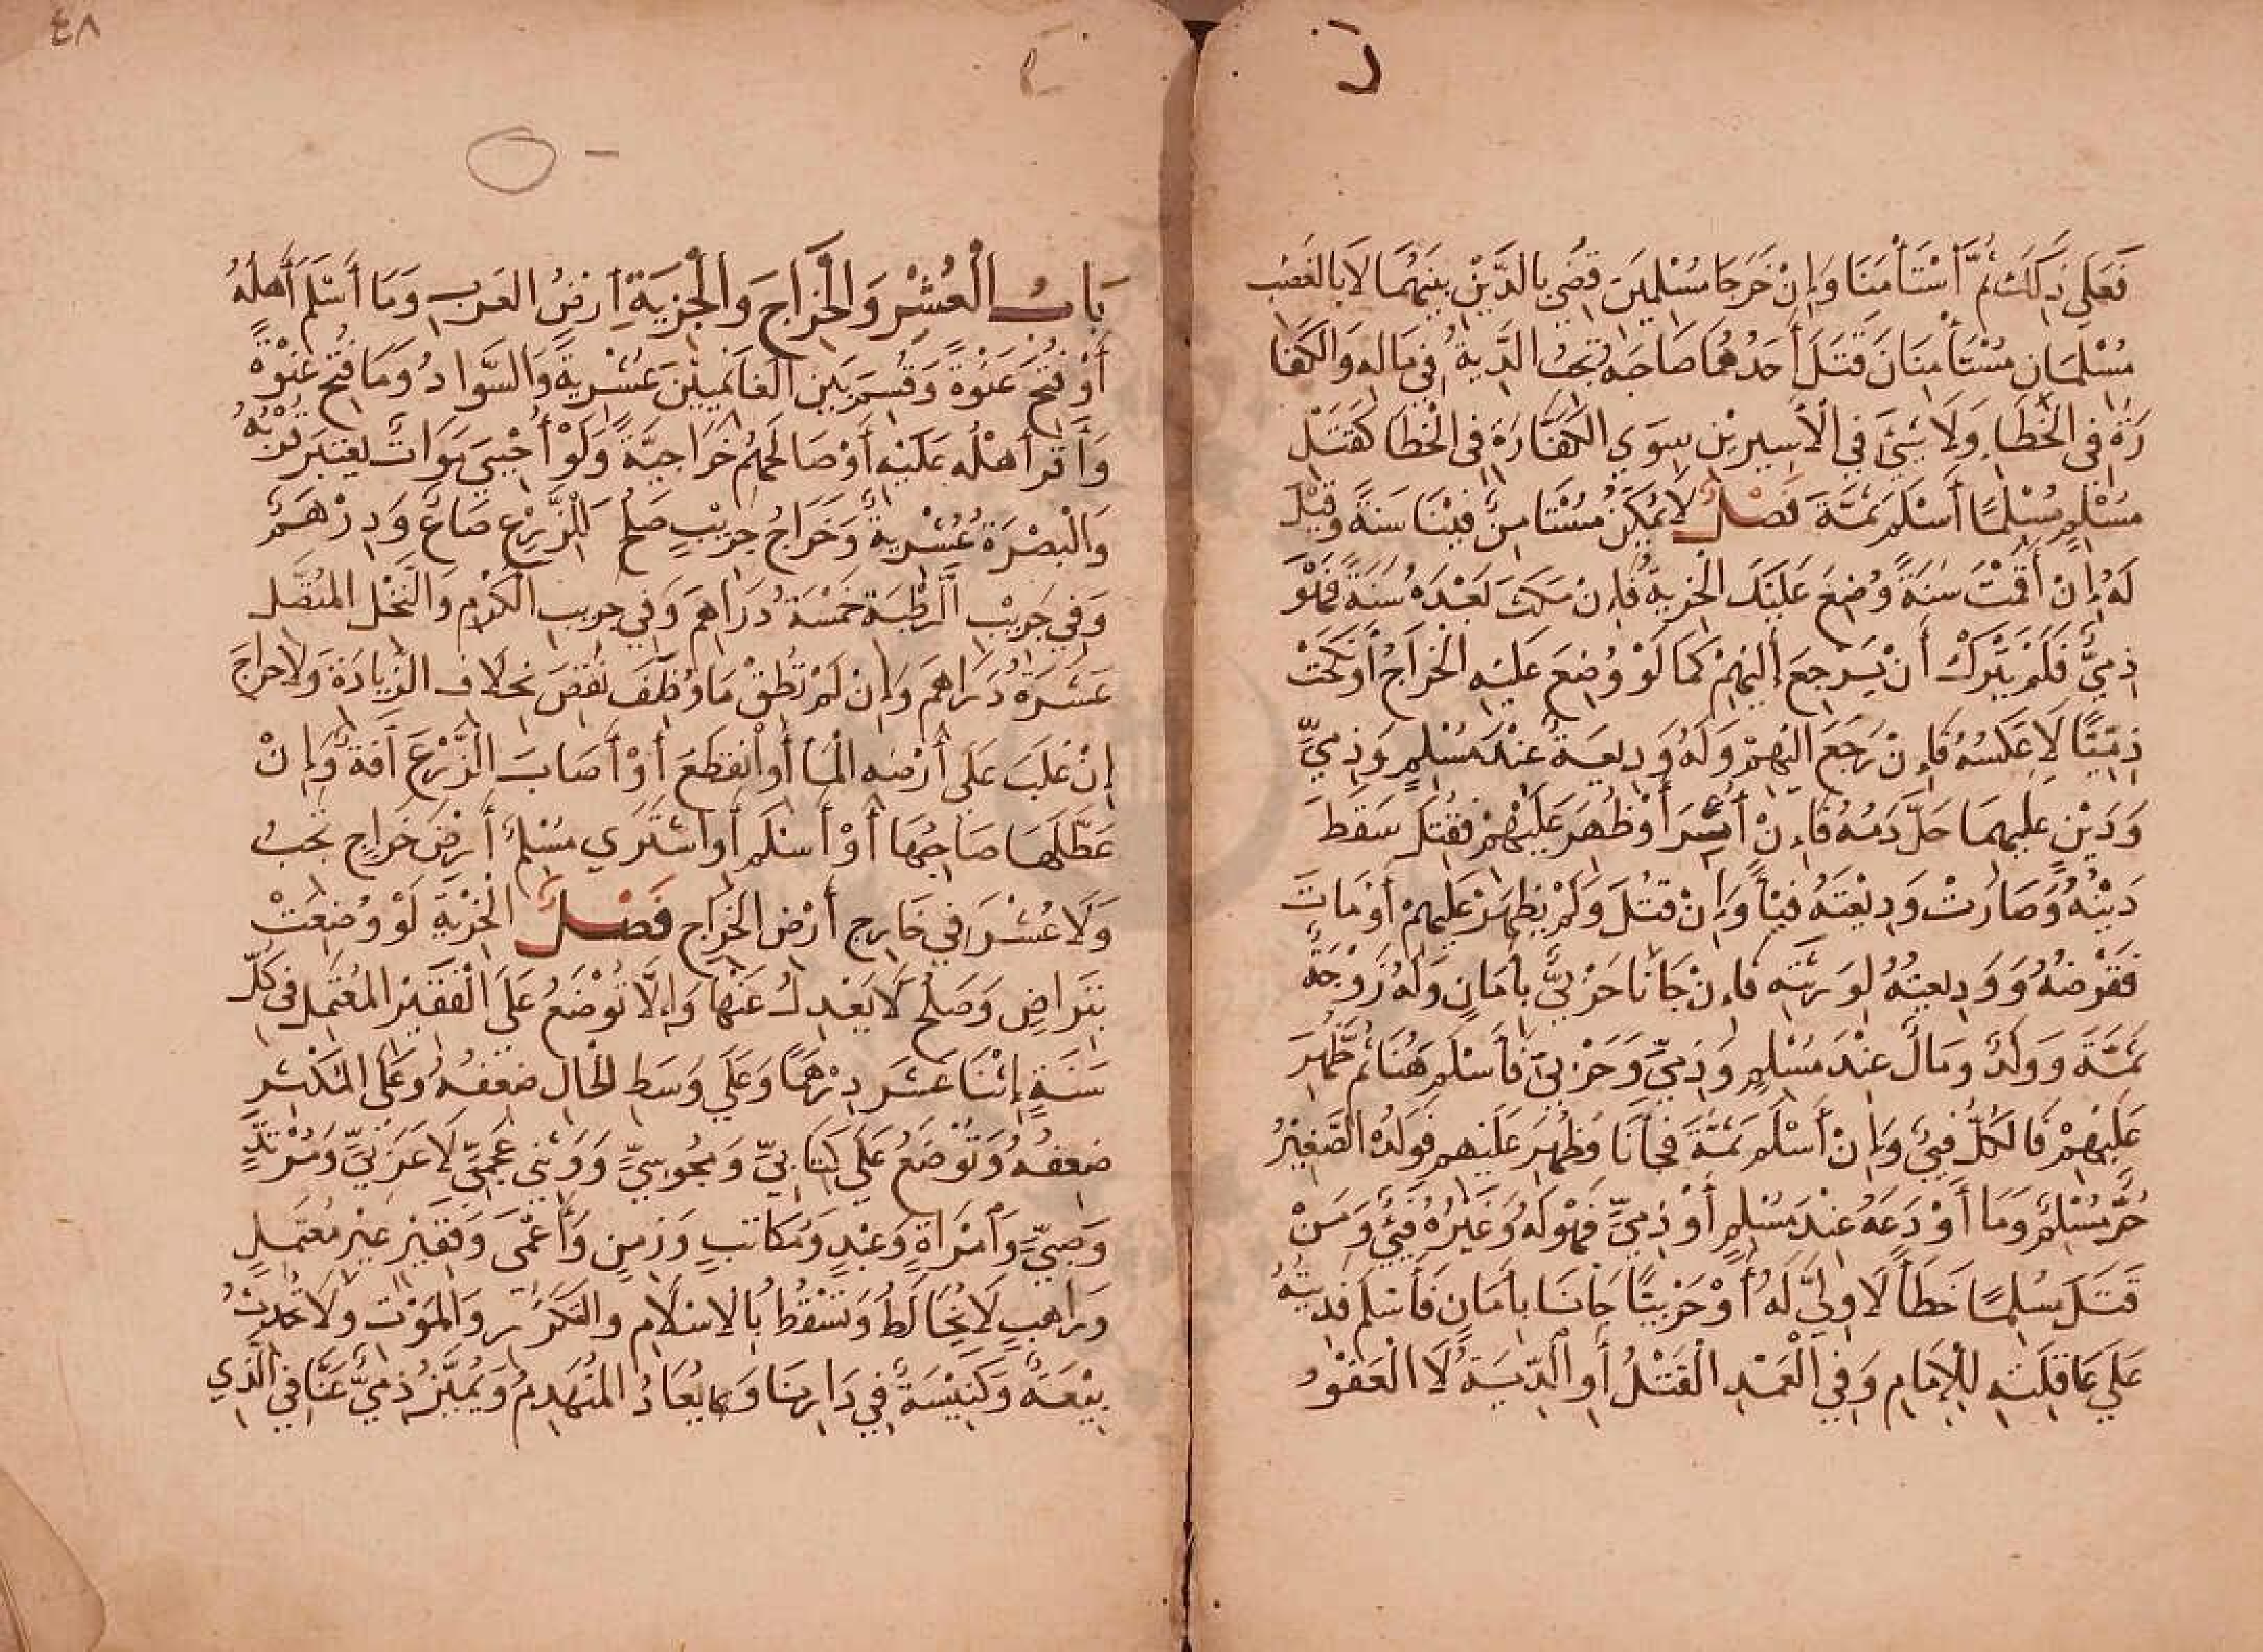 فَعَلَى ذَلِكَ ثُمَّ اسْتَأْمَنَا وَإِنْ خَرَجَا مُسْلِمَيْنَ قُضِيَ بِالدَّيْنِ بَيْنَهُمَا لَا بِالغَصْبِ
مُسْلِمَانِ مُسْتَأْمِنَانِ قَتَلَ أَحَدُهُمَا صَاحِبَهُ تَجِبُ الدِّيَةُ فِي مَالِهِ وَالكَفَا
رَةُ فِي الخَطَاءِ وَلَا شَيْءَ فِي الْأَسِيرِيْنِ سِوَى الكَفَّارَةِ فِي الْخَطَا كَقَتْلِ
مُسْلِمٍ مُسْلِمًا أَسْلَمَ ثَمَّةَ فَصْلٌ لَا يُمَكَّنُ مُسْتَامِنٌ فِيْنَا سَنَةً وَقِيْلَ
لَهُ إِنْ أَقَمْتَ سَنَةً وُضِعَ عَلَيْكَ الْجِزْيَةُ فَإِنْ مَكَثَ بَعْدَهُ سَنَةً فَهُوَ
ذِمِّيٌّ فَلَمْ يُتْرَكْ أَنْ يَرْجِعَ إِلَيْهِمْ كَمَا لَوْ وُضِعَ عَلَيْهِ الْخَرَاجُ أَوْ نَكَحَتْ
ذِمِّيًّا لَا عَكْسُهُ فَإِنْ رَجَعَ الَيْهِمْ وَلَهُ وَدِيعَةٌ عِنْدَ مُسْلِمٍ وَذِمِيٍّ
وَدَيْنٍ عَلَيْهِمَا حَلَّ دَمُهُ فَاِنْ أُسِرَ أَوْ ظُهِرَ عَلَيْهِمْ فَقُتِلَ سَقَطَ
دَيْنُهُ وَصَارَتْ وَدِيْعَتُهُ فَيْأً وَإِنْ قُتِلَ وَلَمْ يُظْهَرْ عَلَيْهِمْ أَوْ مَاتَ
فَقَرْضُهُ وَوَدِيعَتُهُ لِوَرَثَتِهِ فَاِنْ جَانَا حَرْبِيٌّ بِأَمَانٍ وَلَهُ زَوْجَةٌ
ثَمَّةَ وَوَلَدٌ وَمَالٌ عِنْدَ مُسْلِمٍ وَذِمِيٍّ وَحَرْبِيٍّ فَأَسْلَمَ هُنَا ثُمَّ ظُهِرَ
عَلَيْهِمْ فَالْكُلُّ فَيْئٌ وَإِنْ أَسْلَمَ ثَمَّةَ فَجَأَنَا فَظُهِرَ عَلَيْهِمْ فَوَلَدُهُ الصَّغِيْرُ
حُرٌّ مُسْلِمٌ وَمَا أَوْدَعَهُ عِنْدَ مُسْلِمٍ أَوْ ذِمِيٍّ فَهُوَ لَهُ وَغَيْرُهُ فَيْئٌ وَمَنْ
قَتَلَ مُسْلِمًا خَطَأً لَا وَلِيَّ لَهُ أَوْ حَرْبِيًّا جَانَا بِأَمَانٍ فَأَسْلَمَ فَدِيَتُهُ
عَلَى عَاقِلَتِهِ لِلْإِمَامِ وَفِي الْعَمْدِ الْقَتْلُ أَوِ الدِّيَةُ لَا الْعَفْوُ
٤٨
بَابُ الْعُشْرِ وَالْخَرَاجِ وَالْجِزْيَةِ أَرْضُ العَرَبِ وَمَا أَسْلَمَ أَهْلُهُ
أَوْ فُتِحَ عَنْوَةً وَقُسِمَ بَيْنَ الْغَانِمِيْنَ عُشْرِيَّةً وَالسَّوَادُ وَمَا فُتِحَ عَنْوَةً
وَأُقِرَّ أَهْلُهُ عَلَيْهِ أَوْ صَالَحَهُمْ خَرَاجِيَّةً وَلَوْ أُحْيِيَ مَوَاتٌ يُعْتَبَرُ قُرْبُهُ
وَالْبَصْرَةُ عُشْرِيَّةٌ وَخَرَاجُ جَرِيْبٍ صَلُحَ لِلزَّرْعِ صَاعٌ وَدِرْهَمٌ
وَفِي جَرِيْبِ الرَّطْبَةِ خَمْسَةُ دَرَاهِمَ وَفِي جَرِيبِ الْكَرْمِ وَالنَّخْلِ المُتَّصِلِ
عَشَرَةُ دَرَاهِمَ وَإِنْ لَمْ تُطِقْ مَا وُظِّفَ نُقِصَ بِخِلَافِ الزِّيَادَةِ وَلَا خراجَ
إِنْ غَلَبَ عَلَى أَرْضِهِ الْمَا أَوِ انْقَطَعَ أَوْ أَصَابَ الزَّرْعَ آفَةٌ وَإِنْ
عَطَّلَهَا صَاحِبُهَا أَوْ أَسْلَمَ أَوِ اشْتَرَى مُسْلِمٌ أَرْضَ خَرَاجٍ تَجِبُ
وَلَا عُشْرَ فِي خَارِجِ أَرْضِ الْخَرَاجِ فَصْلٌ الْجِزْيَةِ لَوْ وُضِعَتْ
بِتَرَاضٍ وَصُلْحٍ لَا يُعْدَلُ عَنْهَا وَإِلَّا تُوْضَعُ عَلَى الْفَقِيْرِ المُعْتَمِلِ فِي كُلِّ
سَنَةٍ إِثْنَا عَشَرَ دِرْهَمًا وَعَلَى وَسَطِ الْحَالِ ضِعْفُهُ وَعَلَى المُكْثِرِ
ضِعْفُهُ وَتُوْضَعُ عَلَى كِتَابِيٍّ وَمَجُوسِيٍّ وَوَثَنِيٍّ عَجَمِيٍّ لَا عَرَبِيٍّ وَمُرْتَدٍّ
وَصَبِيٍّ وَامْرَاةٍ وَعَبْدٍ وَمُكَاتَبٍ وَزَمِنٍ وَأَعْمَى وَفَقِيْرٍ غَيْرِ مُعْتَمِلٍ
وَرَاهِبٍ لَا يُخَالِطُ وَتَسْقُطُ بِالاسْلَامِ وَالتَكَرُّرِ وَالمَوْتِ وَلَا تُحْدَثُ
بِيْعَةٌ وَكَنِيْسَةٌ فِي دَارِنَا وَيُعَادُ المُنْهَدِمُ وَيُمَيَّزُ ذِمِيٌّ عَنَّا فِي الَّذِي